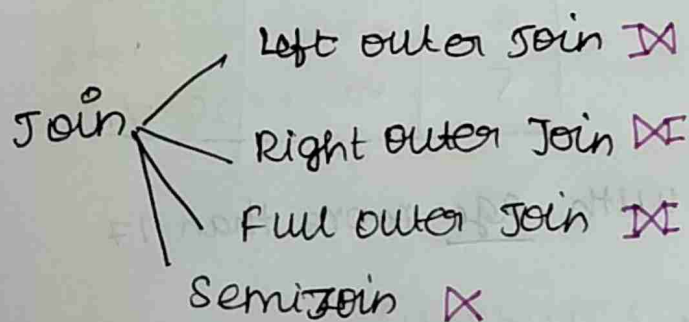 Left outer Join ⟕
Join
Right outer Join ⟖
Full outer Join ⟗
Semijoin ⋉